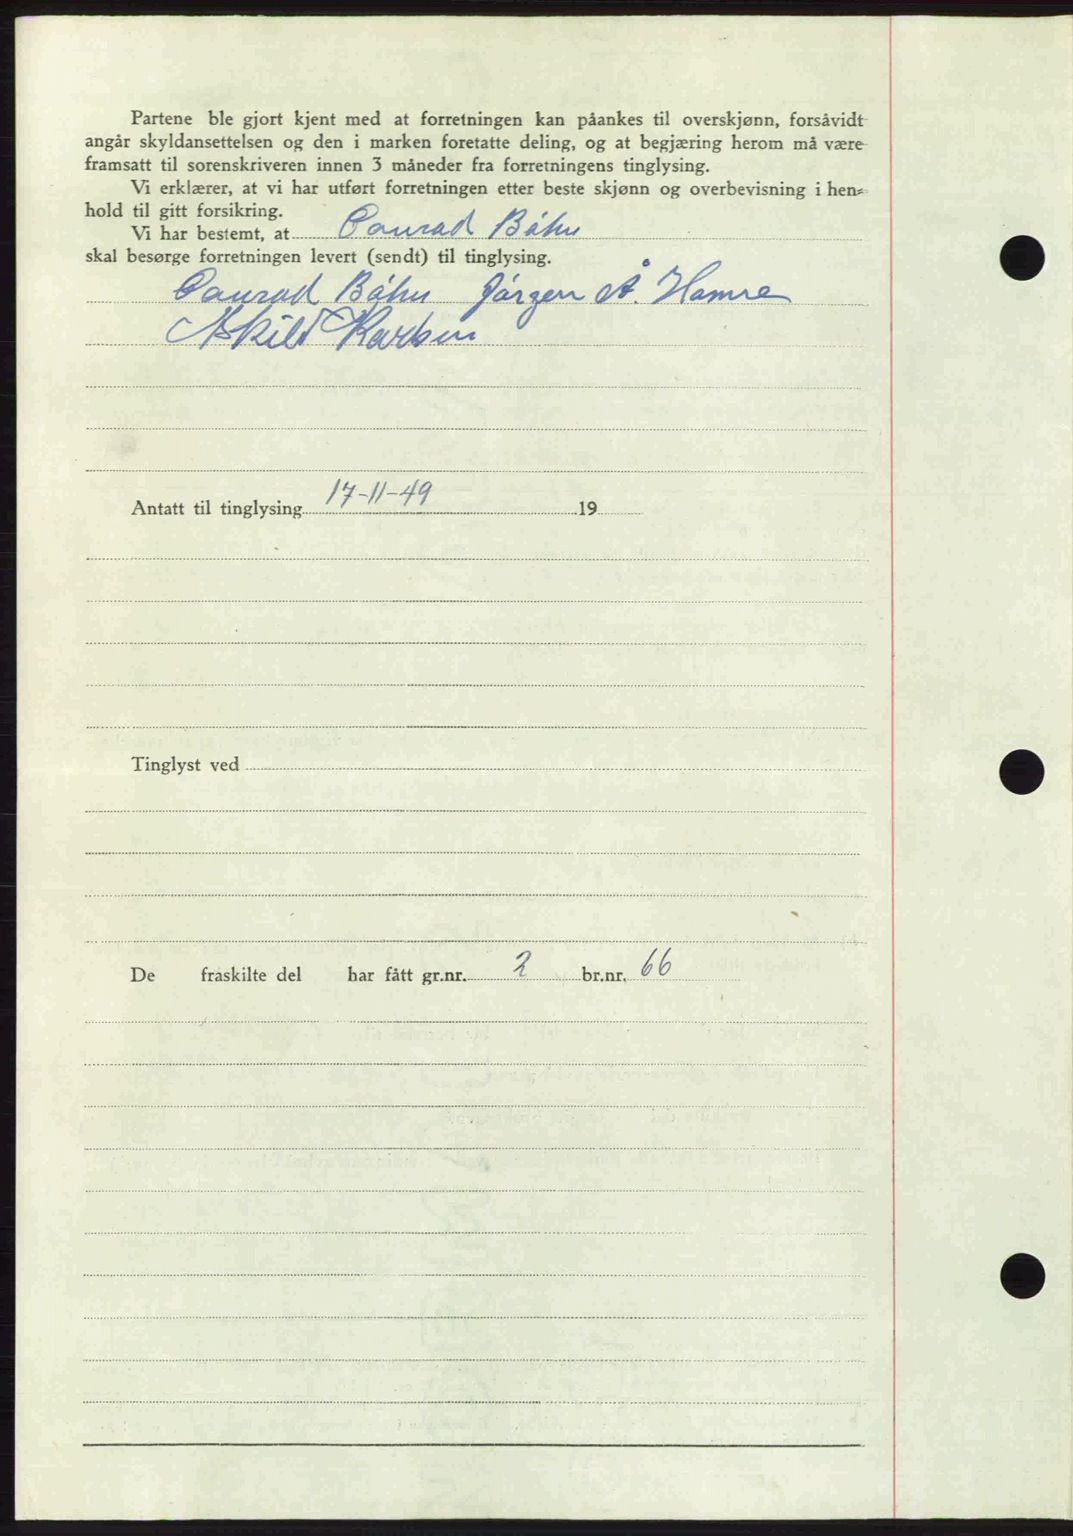 Partene ble gjort kjent med at forretningen kan påankes til overskjønn, forsåvidt
angår skyldansettelsen og den i marken foretatte deling, og at begjæring herom må være
framsatt til sorenskriveren innen 3 måneder fra forretningens tinglysing.
Vi erklærer, at vi har utført forretningen etter beste skjønn og overbevisning i hen-
hold til gitt forsikring.
Vi har bestemt, at Conrad Båhu
skal besørge forretningen levert (sendt) til tinglysing.
Conrad Båhu Jørgen Å. Hamre
Askild Karlsen
Antatt til tinglysing 17-11-49 19
Tinglyst ved
De fraskilte del har fått gr.nr. 2 br.nr. 66